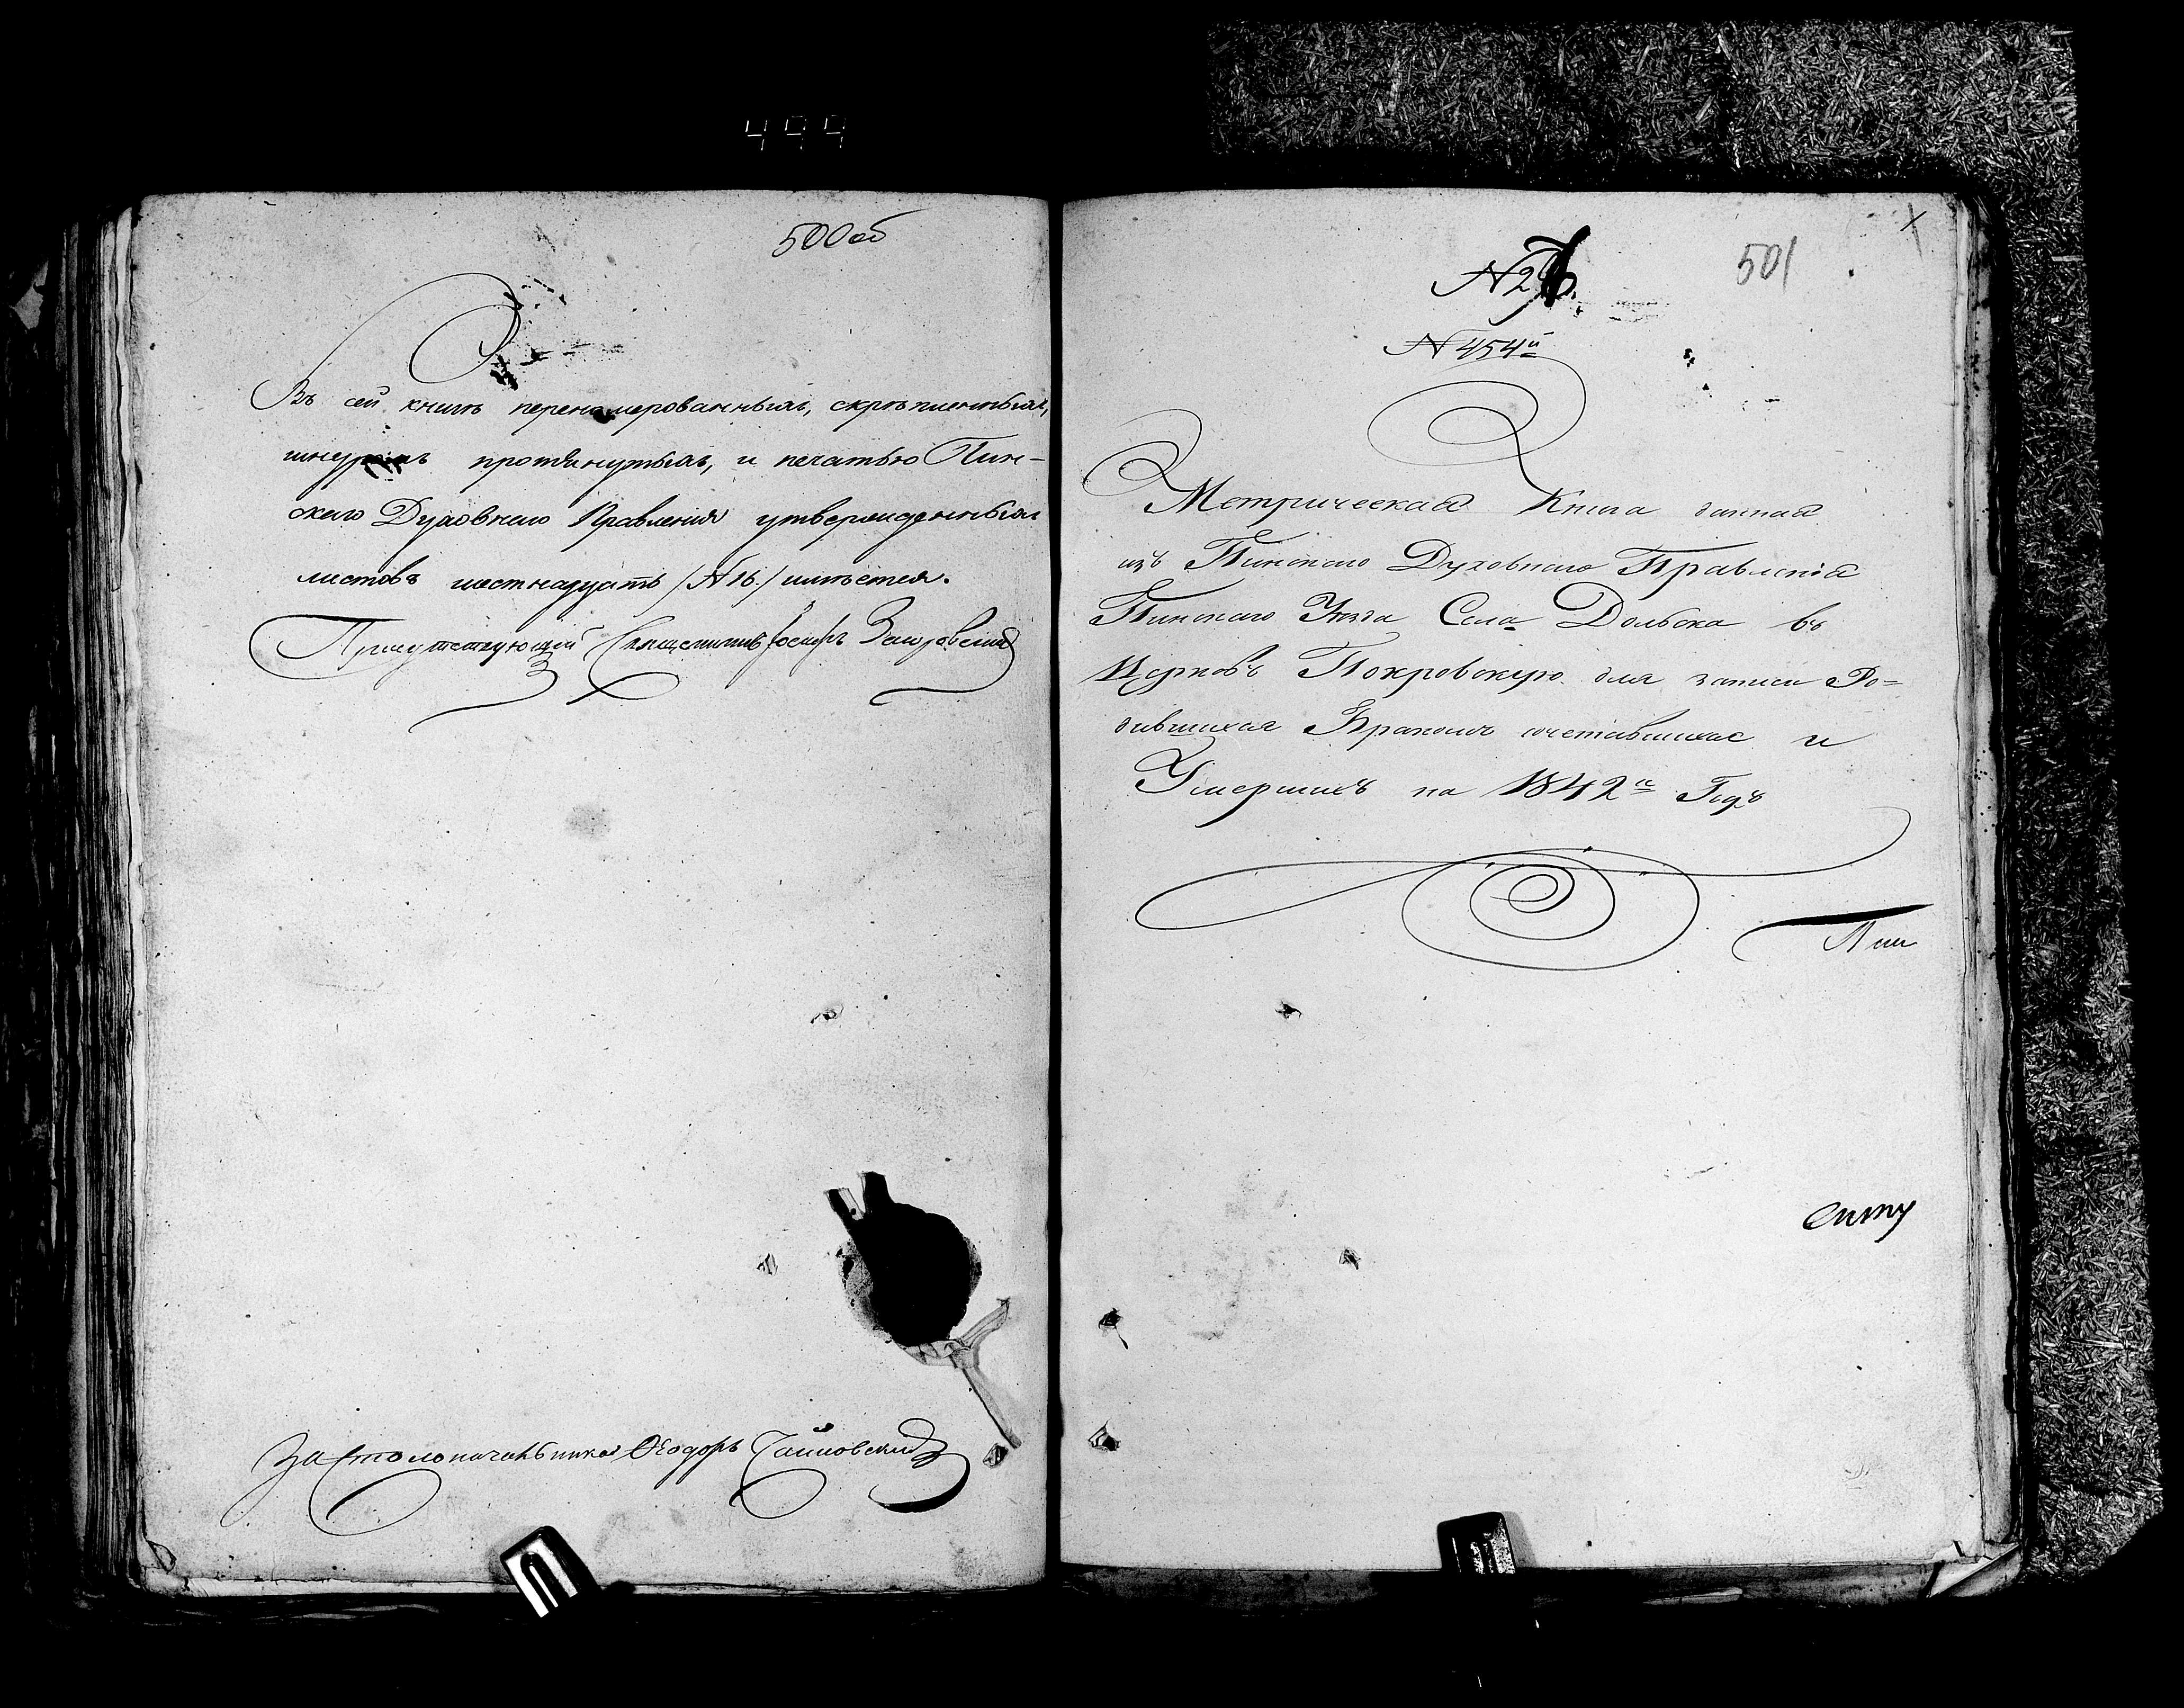 499
500об
Въ сей книгѣ перенумерованныхъ, скрѣпленныхъ,
шнуромъ протянутыхъ, и печатью Пин-
скаго Духовнаго Правления утвержденныхъ
листовъ шестнадцать /№ 16./ имѣется.
Присутствующій Священникъ Іосифъ
За Столоначальника Ѳеодоръ
501
№ 454й
Метрическая Книга данная
изъ Пинскаго Духовнаго Правленія
Пинскаго Уѣзда Села Дольска въ
Церковь Покровскую для записи Ро=
дившихся Бракомъ сочетавшихся и
Умершихъ на 1842й Годъ